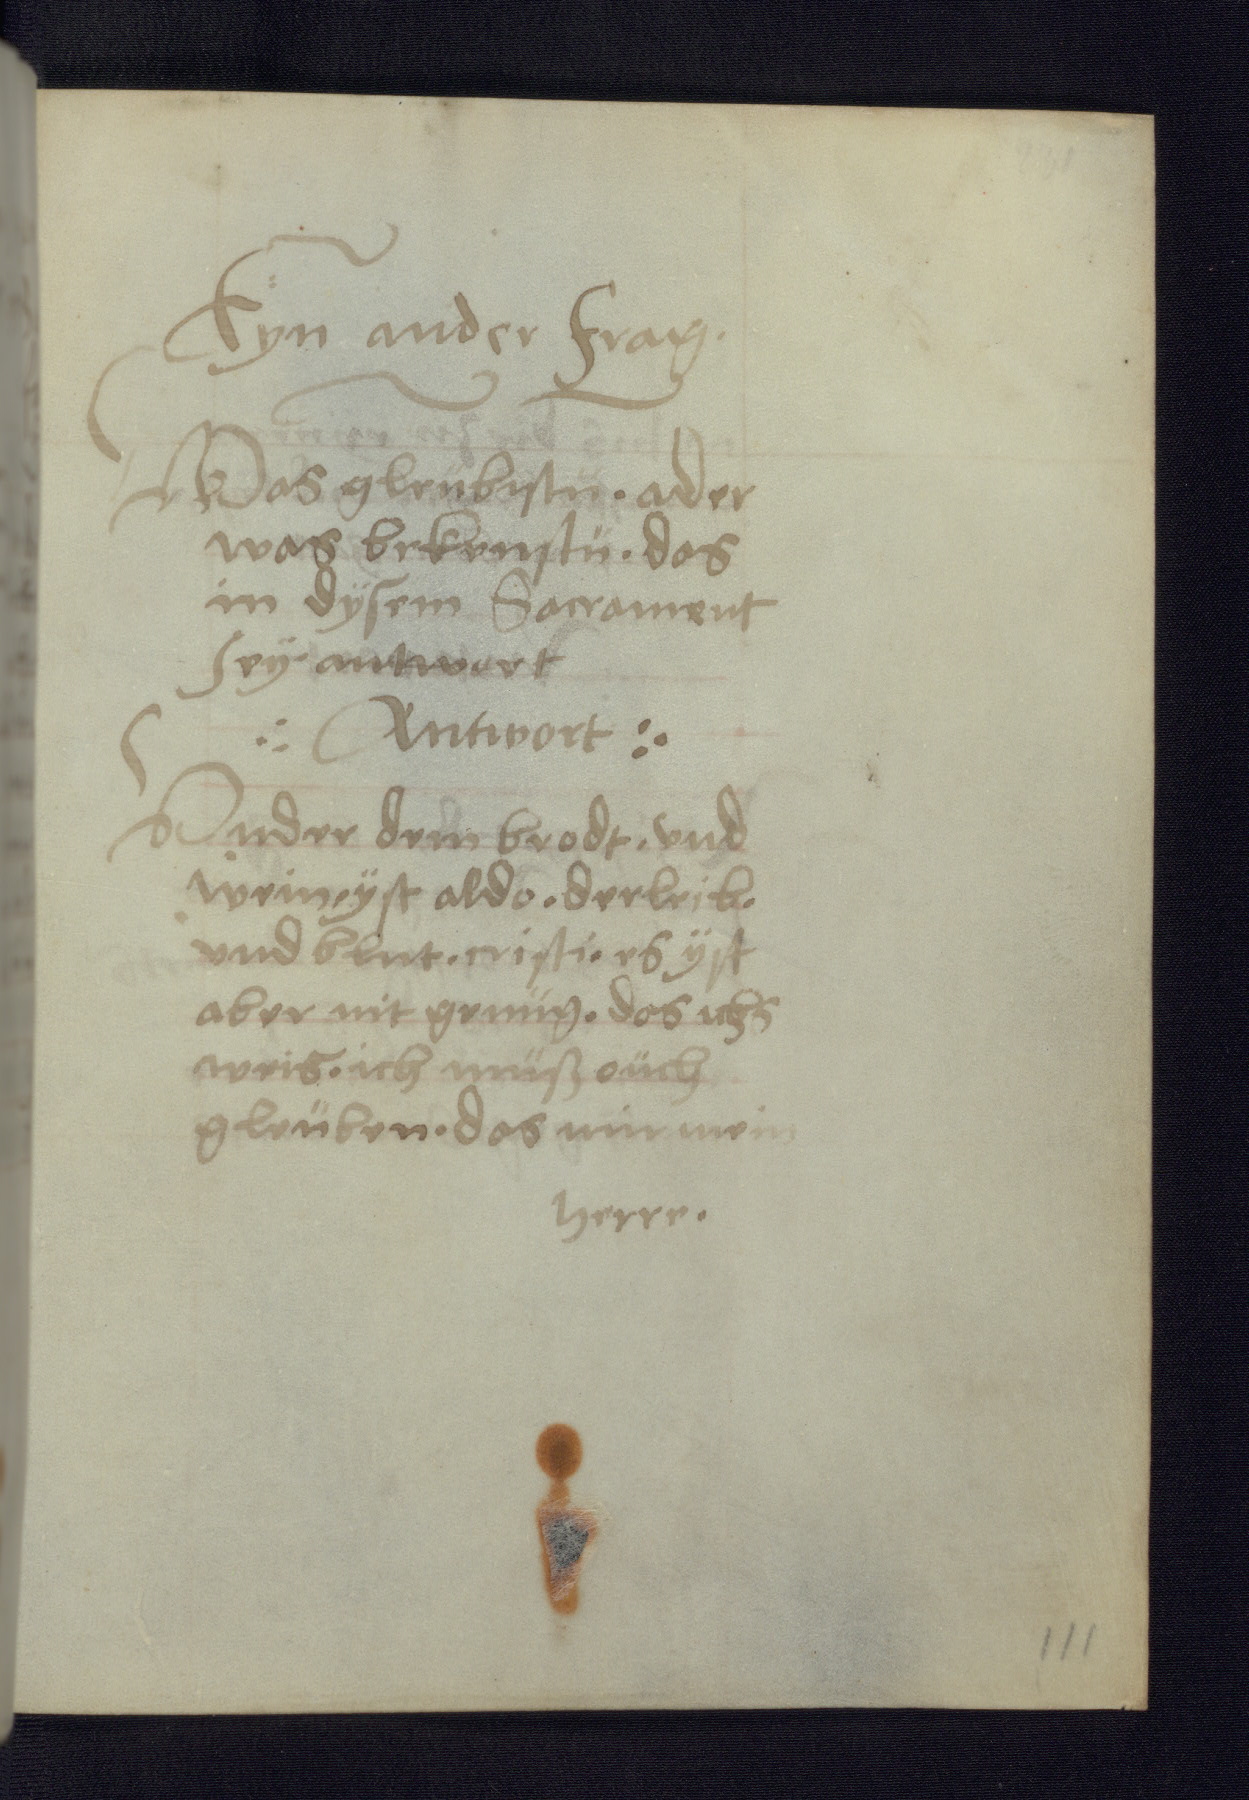 Eyn ander Frag.
Was gleubistu. ader
was bekenstü. das
in dÿsem Sacrament
seÿ antwort
Antwort
Vnder dem brodt. vnd
wein, ÿst aldo. der leib.
vnd blut. cristi. es ÿst
aber nit genüg. das ichs
weis. ich müß oüch
gleüben. das mir mein
herre.
111